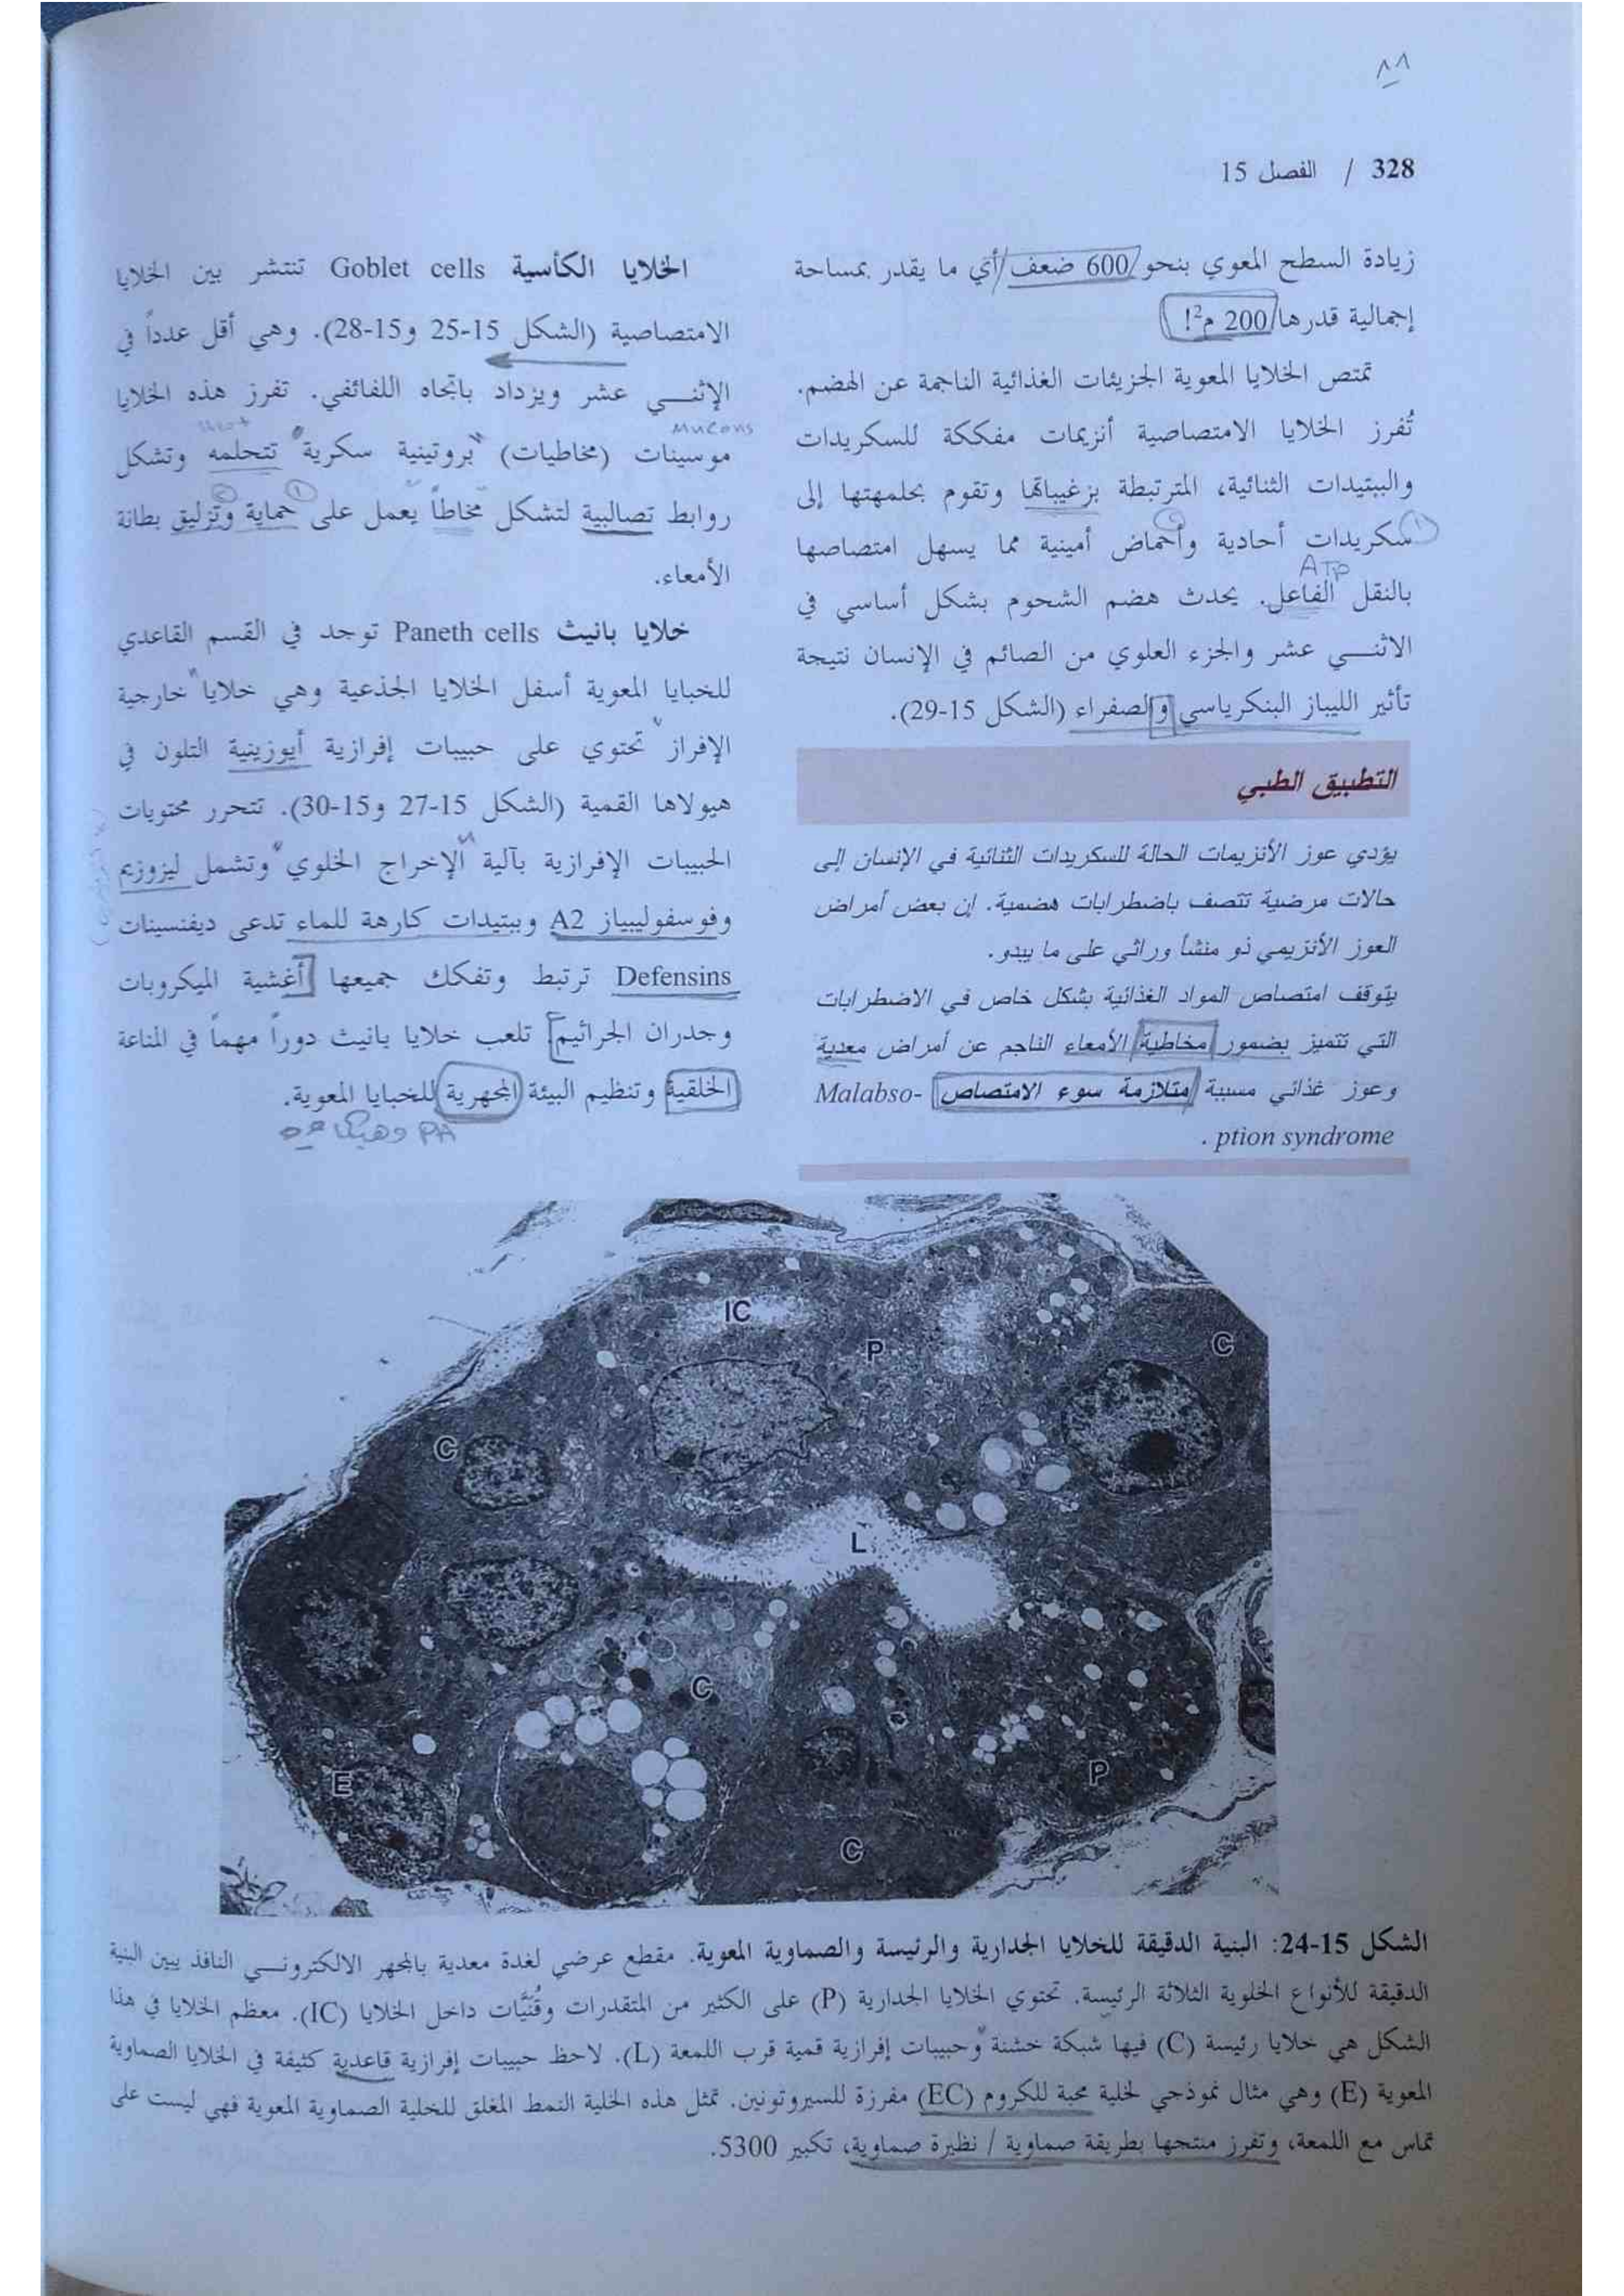 ٨٨
328 / الفصل 15
زيادة السطح المعوي بنحو 600 ضعف أي ما يقدر بمساحة
إجمالية قدرها 200 م²!
تمتص الخلايا المعوية الجزيئات الغذائية الناجمة عن الهضم.
تُفرز الخلايا الامتصاصية أنزيمات مفككة للسكريدات
والببتيدات الثنائية، المترتبطة بزغيباتها وتقوم بحلمهتها إلى
سكريدات أحادية وأحماض أمينية مما يسهل امتصاصها
ATP
بالنقل الفاعل. يحدث هضم الشحوم بشكل أساسي في
الاثنـــي عشر والجزء العلوي من الصائم في الإنسان نتيجة
تأثير الليباز البنكرياسي والصفراء (الشكل 15-29).
التطبيق الطبي
يؤدي عوز الأنزيمات الحالة للسكريدات الثنائية في الإنسان إلى
حالات مرضية تتصف باضطرابات هضمية. إن بعض أمراض
العوز الأنزيمي ذو منشأ وراثي على ما يبدو.
يتوقف امتصاص المواد الغذائية بشكل خاص في الاضطرابات
التي تتميز بضمور مخاطية الأمعاء الناجم عن أمراض معدية
وعوز غذائي مسببة متلازمة سوء الامتصاص Malabso-
ption syndrome .
الخلايا الكأسية Goblet cells تنتشر بين الخلايا
الامتصاصية (الشكل 15-25 و15-28). وهي أقل عدداً في
الإثنـــي عشر ويزداد باتجاه اللفائفي. تفرز هذه الخلايا
Mucons
موسينات (مخاطيات) بروتينية سكرية تتحلمه وتشكل
روابط تصالبية لتشكل مخاطاً يعمل على حماية وتزليق بطانة
الأمعاء.
خلايا بانيث Paneth cells توجد في القسم القاعدي
للخبايا المعوية أسفل الخلايا الجذعية وهي خلايا خارجية
الإفراز تحتوي على حبيبات إفرازية أيوزينية التلون في
هيولاها القمية (الشكل 15-27 و15-30). تتحرر محتويات
الحبيبات الإفرازية بآلية الإخراج الخلوي وتشمل ليزوزيم
وفوسفوليبياز A2 وببتيدات كارهة للماء تدعى ديفنسينات
Defensins ترتبط وتفكك جميعها أغشية الميكروبات
وجدران الجراثيم تلعب خلايا بانيث دوراً مهماً في المناعة
الخلقية وتنظيم البيئة المجهرية للخبايا المعوية.
PA
IC
P
C
C
L
C
E
P
C
الشكل 15-24: البنية الدقيقة للخلايا الجدارية والرئيسة والصماوية المعوية. مقطع عرضي لغدة معدية بالمجهر الالكترونـــي النافذ يبين البنية
الدقيقة للأنواع الخلوية الثلاثة الرئيسة. تحتوي الخلايا الجدارية (P) على الكثير من المتقدرات وقُنَيَّات داخل الخلايا (IC). معظم الخلايا في هذا
الشكل هي خلايا رئيسة (C) فيها شبكة خشنة وحبيبات إفرازية قمية قرب اللمعة (L). لاحظ حبيبات إفرازية قاعدية كثيفة في الخلايا الصماوية
المعوية (E) وهي مثال نموذجي لخلية محبة للكروم (EC) مفرزة للسيروتونين. تمثل هذه الخلية النمط المغلق للخلية الصماوية المعوية فهي ليست على
تماس مع اللمعة، وتفرز منتجها بطريقة صماوية / نظيرة صماوية، تكبير 5300.